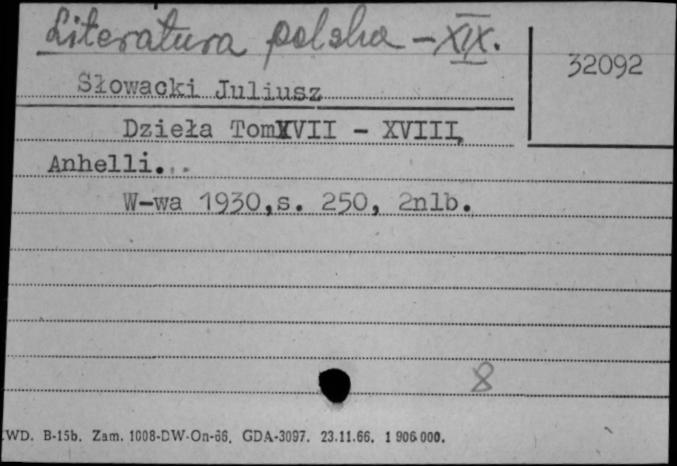 Literatura polska - XIX.
32092
Słowacki Juliusz
Dzieła Tom XVII - XVIII,
Anhelli...
W-wa 1930,s. 250, 2nlb.
8
WD. B-15b. Zam. 1008-DW-On-66. GDA-3097. 23.11.66. 1 906 000.